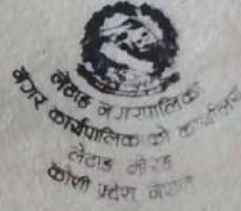 लेटाङ नगरपालिका
नगर कार्यपालिकाको कार्यालय
लेटाङ मोरङ
कोशी प्रदेश नेपाल